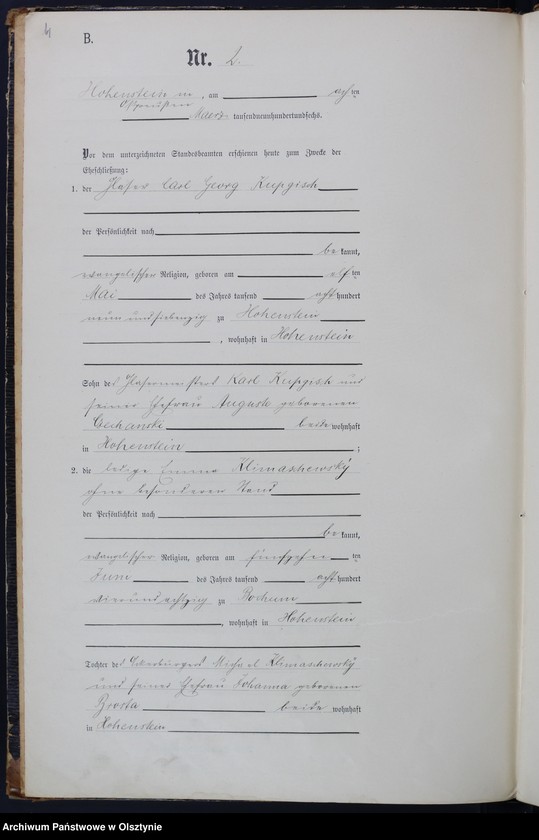 4
B.
Nr. 2.
Hohenstein in, am achten
Ostpreußen Maerz tausendneunhundertundsechs.
Vor dem unterzeichneten Standesbeamten erschienen heute zum Zwecke der
Eheschließung:
1. der Glaser Carl Georg Kupgisch
der Persönlichkeit nach
be kannt,
evangelischer Religion, geboren am elften
Mai des Jahres tausend acht hundert
neun und siebenzig zu Hohenstein
, wohnhaft in Hohenstein
Sohn des Glasermeisters Karl Kupgisch und
seiner Ehefrau Auguste geborenen
beide wohnhaft
in Hohenstein;
2. die ledige Emma Klimaschewsky
ohne besonderen Stand
der Persönlichkeit nach
be kannt,
evangelischer Religion, geboren am fünfzehnten
Juni des Jahres tausend acht hundert
vierundachtzig zu Bochum
, wohnhaft in Hohenstein
Tochter des Michael Klimaschewsky
und seiner Ehefrau Johanna geborenen
Brosta beide wohnhaft
in Hohenstein
Archiwum Państwowe w Olsztynie